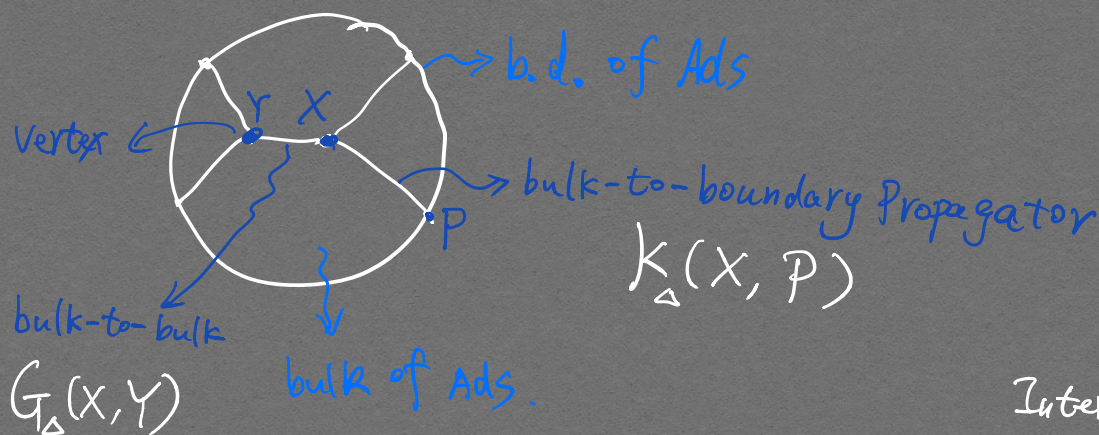 b.d. of Ads
Y X
Vertex
bulk-to-boundary Propagator
P
K_Δ(X, P)
bulk-to-bulk
bulk of Ads.
G_Δ(X,Y)
Inte